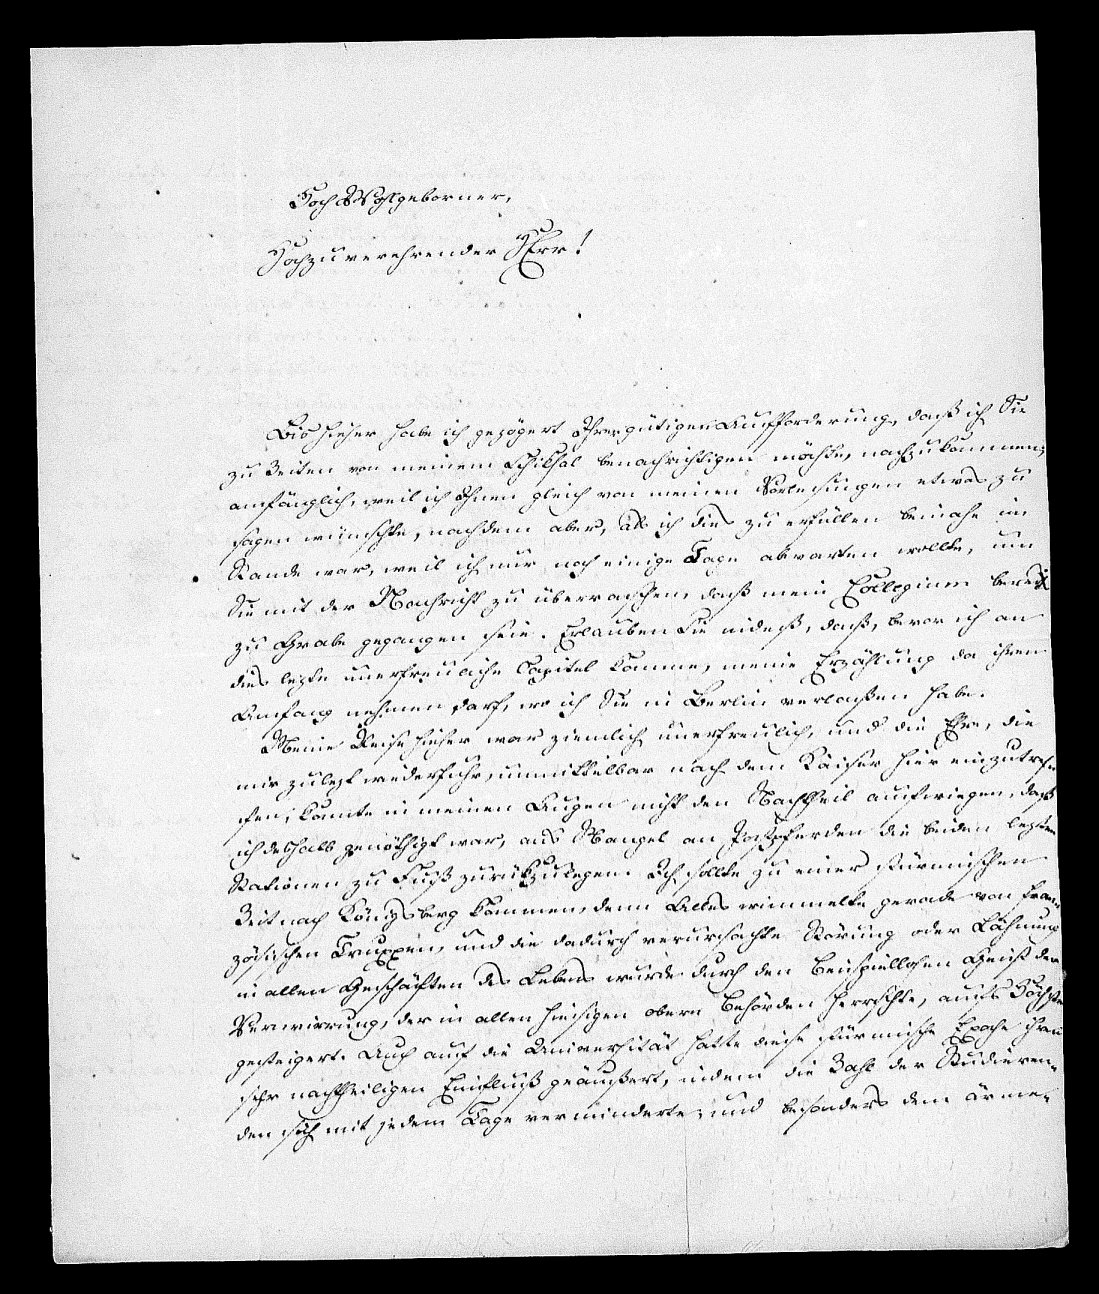 HochWohlgeborner,
Hochzuverehrender HErr!
Bis hieher habe ich gezögert Ihrer gütigen Aufforderung, daß ich Sie
zu Zeiten von meinem Schiksal benachrichtigen möchte, nachzukommen;
anfänglich, weil ich Ihnen gleich von meinen Vorlesungen etwas zu
sagen wünschte, nachdem aber, als ich dies zu erfüllen beinahe im
Stande war, weil ich nur noch einige Tage abwarten wollte, um
Sie mit der Nachricht zu überraschen, daß mein Collegium bereits
zu Grabe gegangen sei. Erlauben Sie indeß, daß, bevor ich an
dies lezte unerfreuliche Capitel komme, meine Erzählung da ihren
Anfang nehmen darf, wo ich Sie in Berlin verlaßen habe.
Meine Reise hieher war ziemlich unerfreulich, und die Ehre, die
mir zulezt wiederfuhr, unmittelbar nach dem Kaiser hier einzutref-
fen, konnte in meinen Augen nicht den Nachtheil aufwiegen, daß
ich deshalb genöthigt war, aus Mangel an Postpferden die beiden lezten
Stationen zu Fuß zurükzulegen. Ich sollte zu einer stürmischen
Zeit nach Königsberg kommen, denn Alles wimmelte gerade von fran-
zösischen Truppen, und die dadurch verursachte Störung oder Lähmung
in allen Geschäften des Lebens wurde durch den beispiellosen Geist der
Verwirrung, der in allen hiesigen obern Behörden herrschte, aufs Höchste
gesteigert. Auch auf die Universität hatte diese stürmische Epoche ihren
sehr nachtheiligen Einfluß geäußert, indem die Zahl der Studieren-
den sich mit jedem Tage verminderte, und besonders dem ärme-